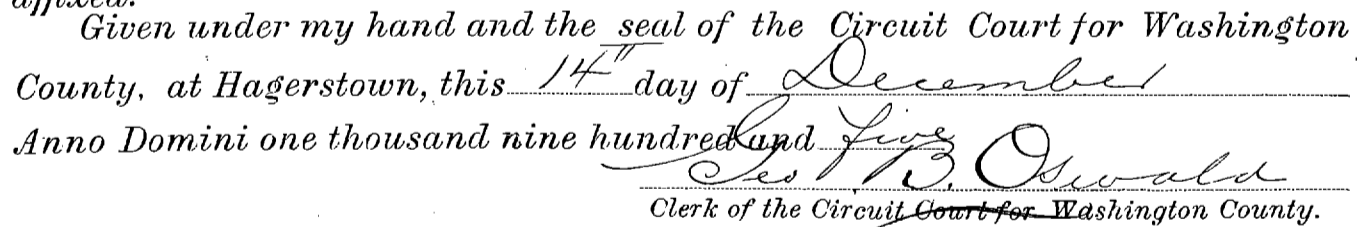 affixed.
Given under my hand and the seal of the Circuit Court for Washington
County, at Hagerstown, this 14" day of December
Anno Domini one thousand nine hundred and five
Geo B. Oswald
Clerk of the Circuit Court for Washington County.